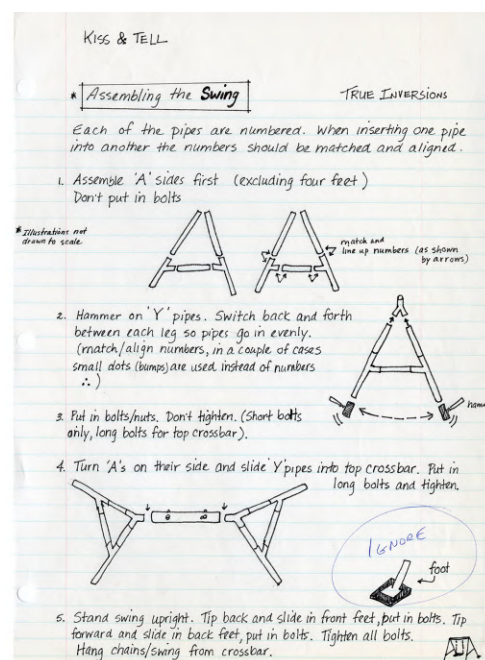 KISS & TELL
* Assembling the Swing
TRUE INVERSIONS
Each of the pipes are numbered. When inserting one pipe
into another the numbers should be matched and aligned.
1. Assemble 'A' sides first (excluding four feet)
Don't put in bolts
* Illustrations not
drawn to scale
match and
line up numbers (as shown
by arrows)
2. Hammer on 'Y' pipes. Switch back and forth
between each leg so pipes go in evenly.
(match/align numbers, in a couple of cases
small dots (bumps) are used instead of numbers
∴ )
hamm
3. Put in bolts/nuts. Don't tighten. (Short bolts
only, long bolts for top crossbar).
4. Turn 'A's on their side and slide 'Y' pipes into top crossbar. Put in
long bolts and tighten.
IGNORE
foot
5. Stand swing upright. Tip back and slide in front feet, put in bolts. Tip
forward and slide in back feet, put in bolts. Tighten all bolts.
Hang chains/swing from crossbar.